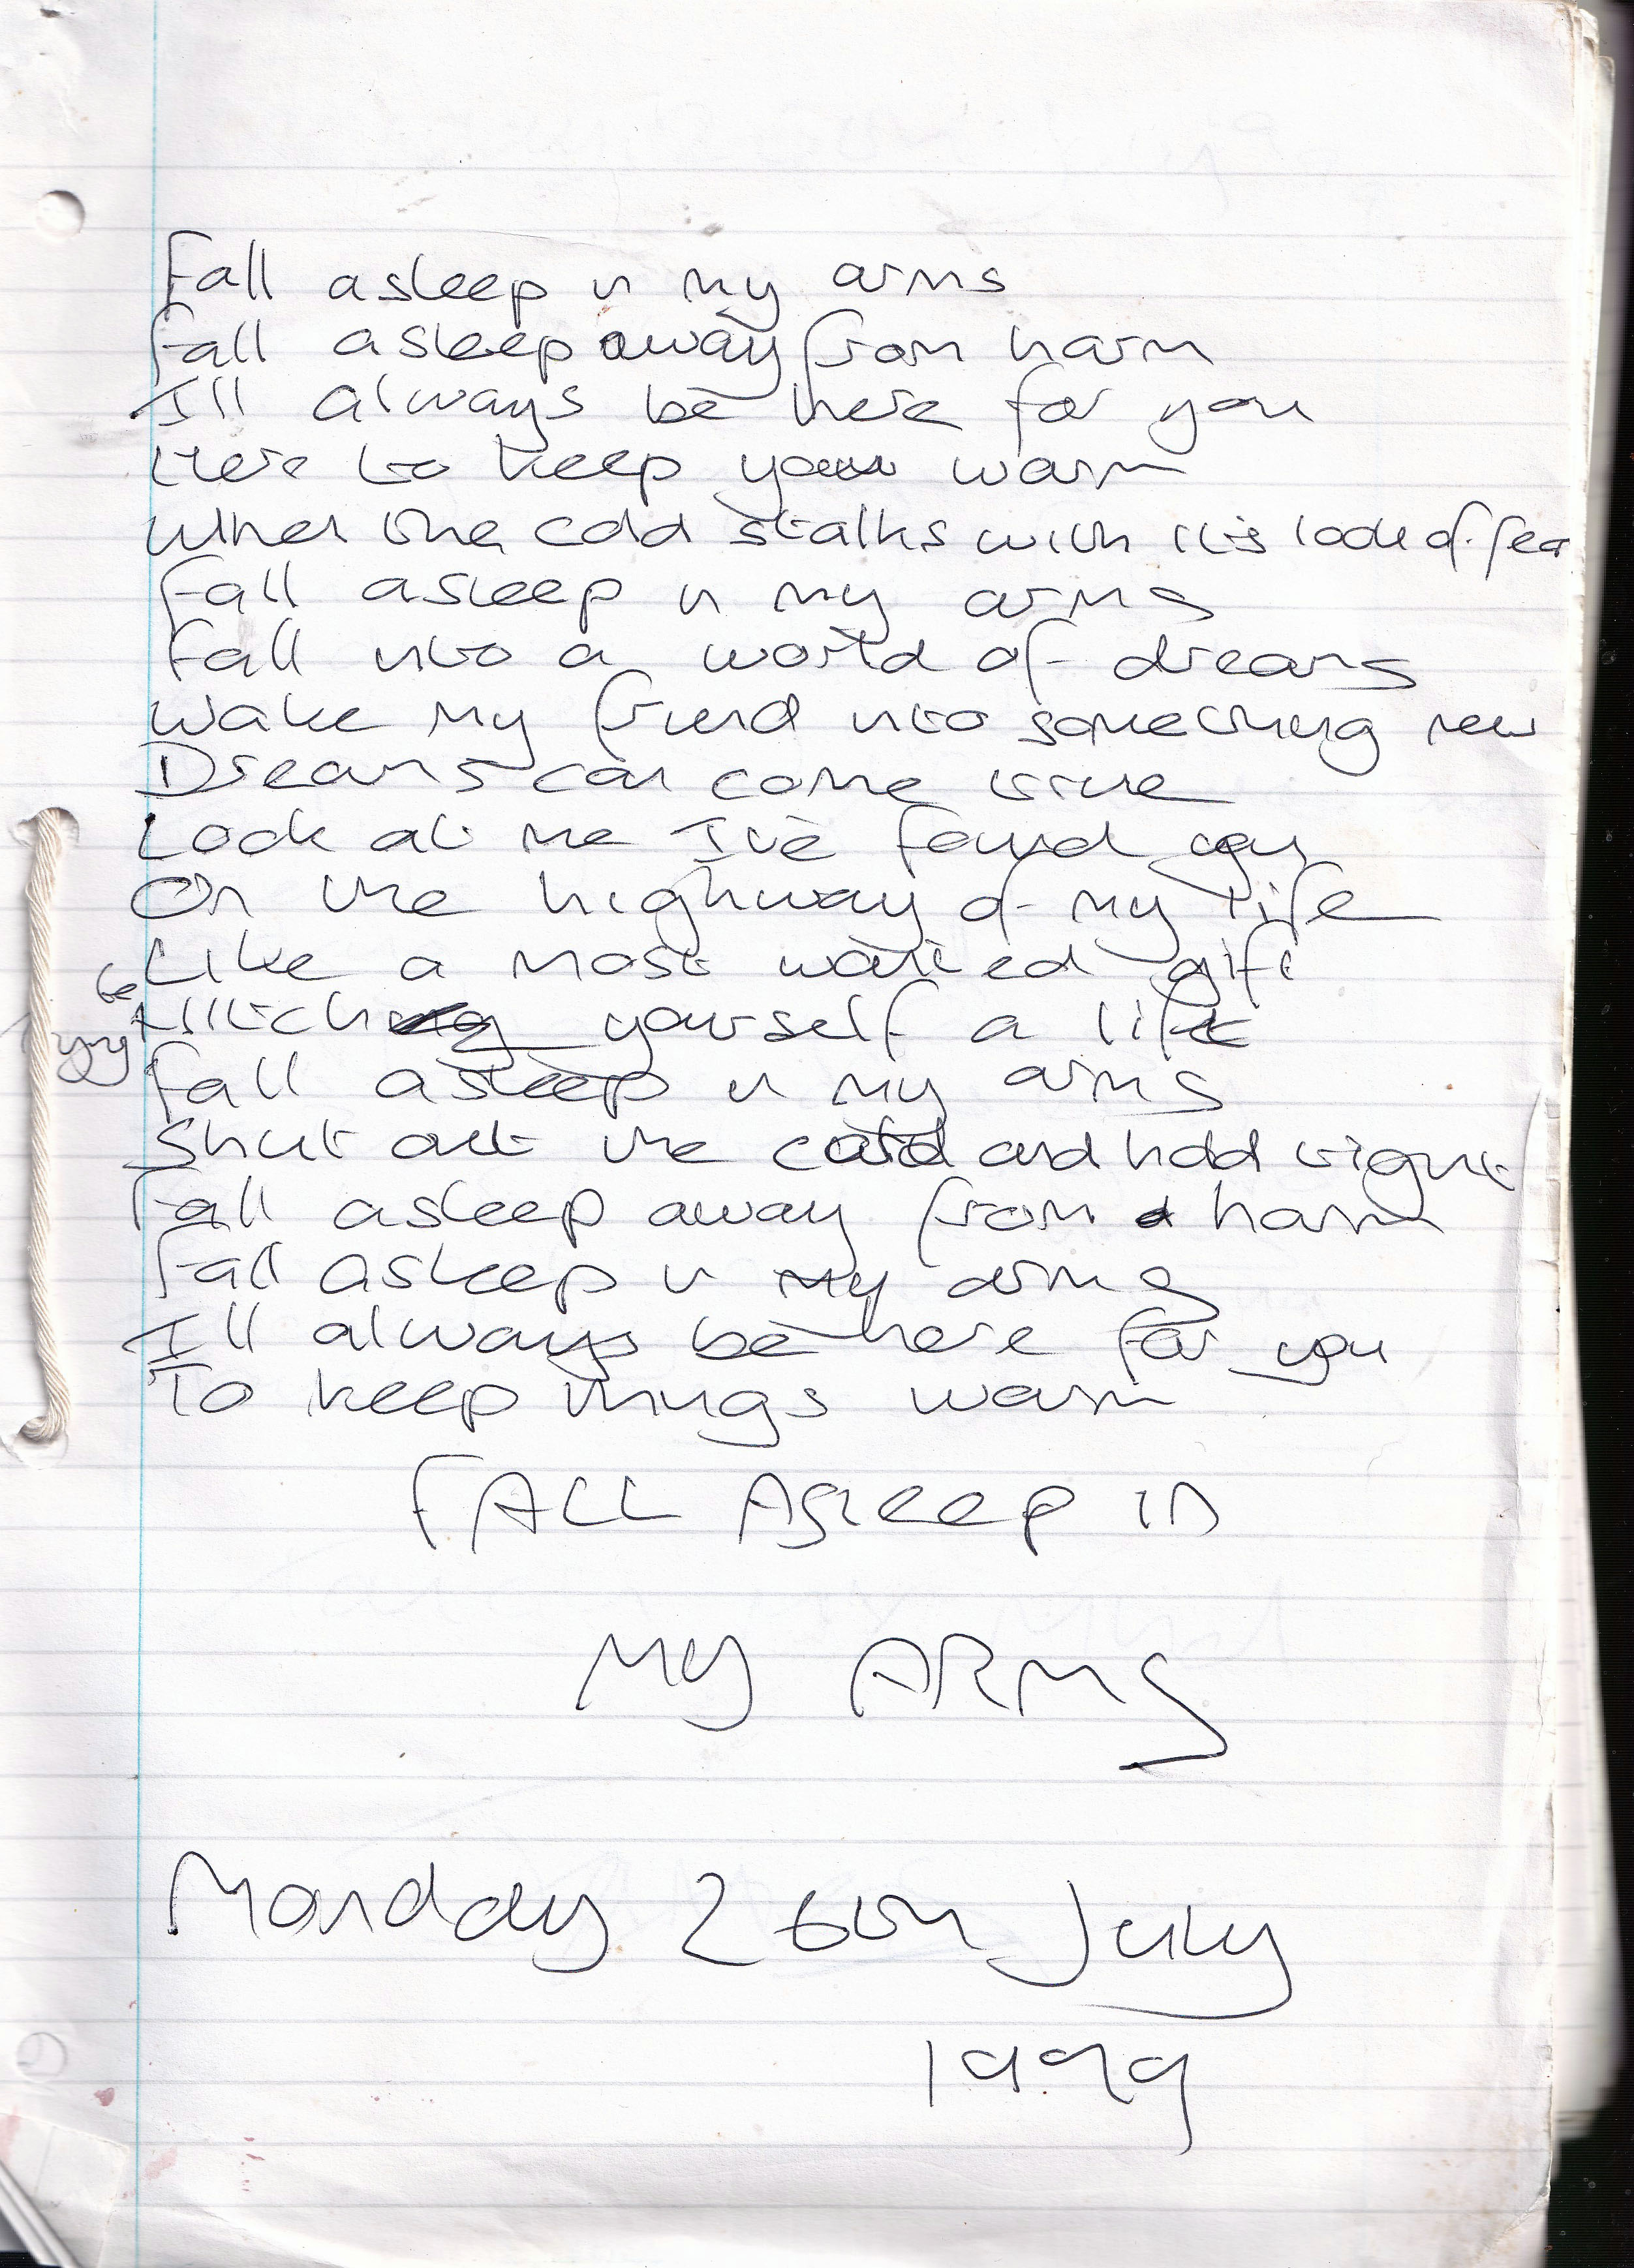 Fall asleep in my arms
Fall asleep away from harm
I'll always be here for you
Here to keep you warm
When the cold stalks with its look of fear
Fall asleep in my arms
Fall into a world of dreams
Wake my friend into something new
Dreams can come true
Look at me I've found you
On the highway of my life
Like a most wanted gift
Trying to hitch yourself a lift
Fall asleep in my arms
Shut out the cold and hold tight
Fall asleep away from harm
Fall asleep in my arms
I'll always be here for you
To keep things warm
FALL ASleep IN
MY ARMS
Monday 26th July
1999